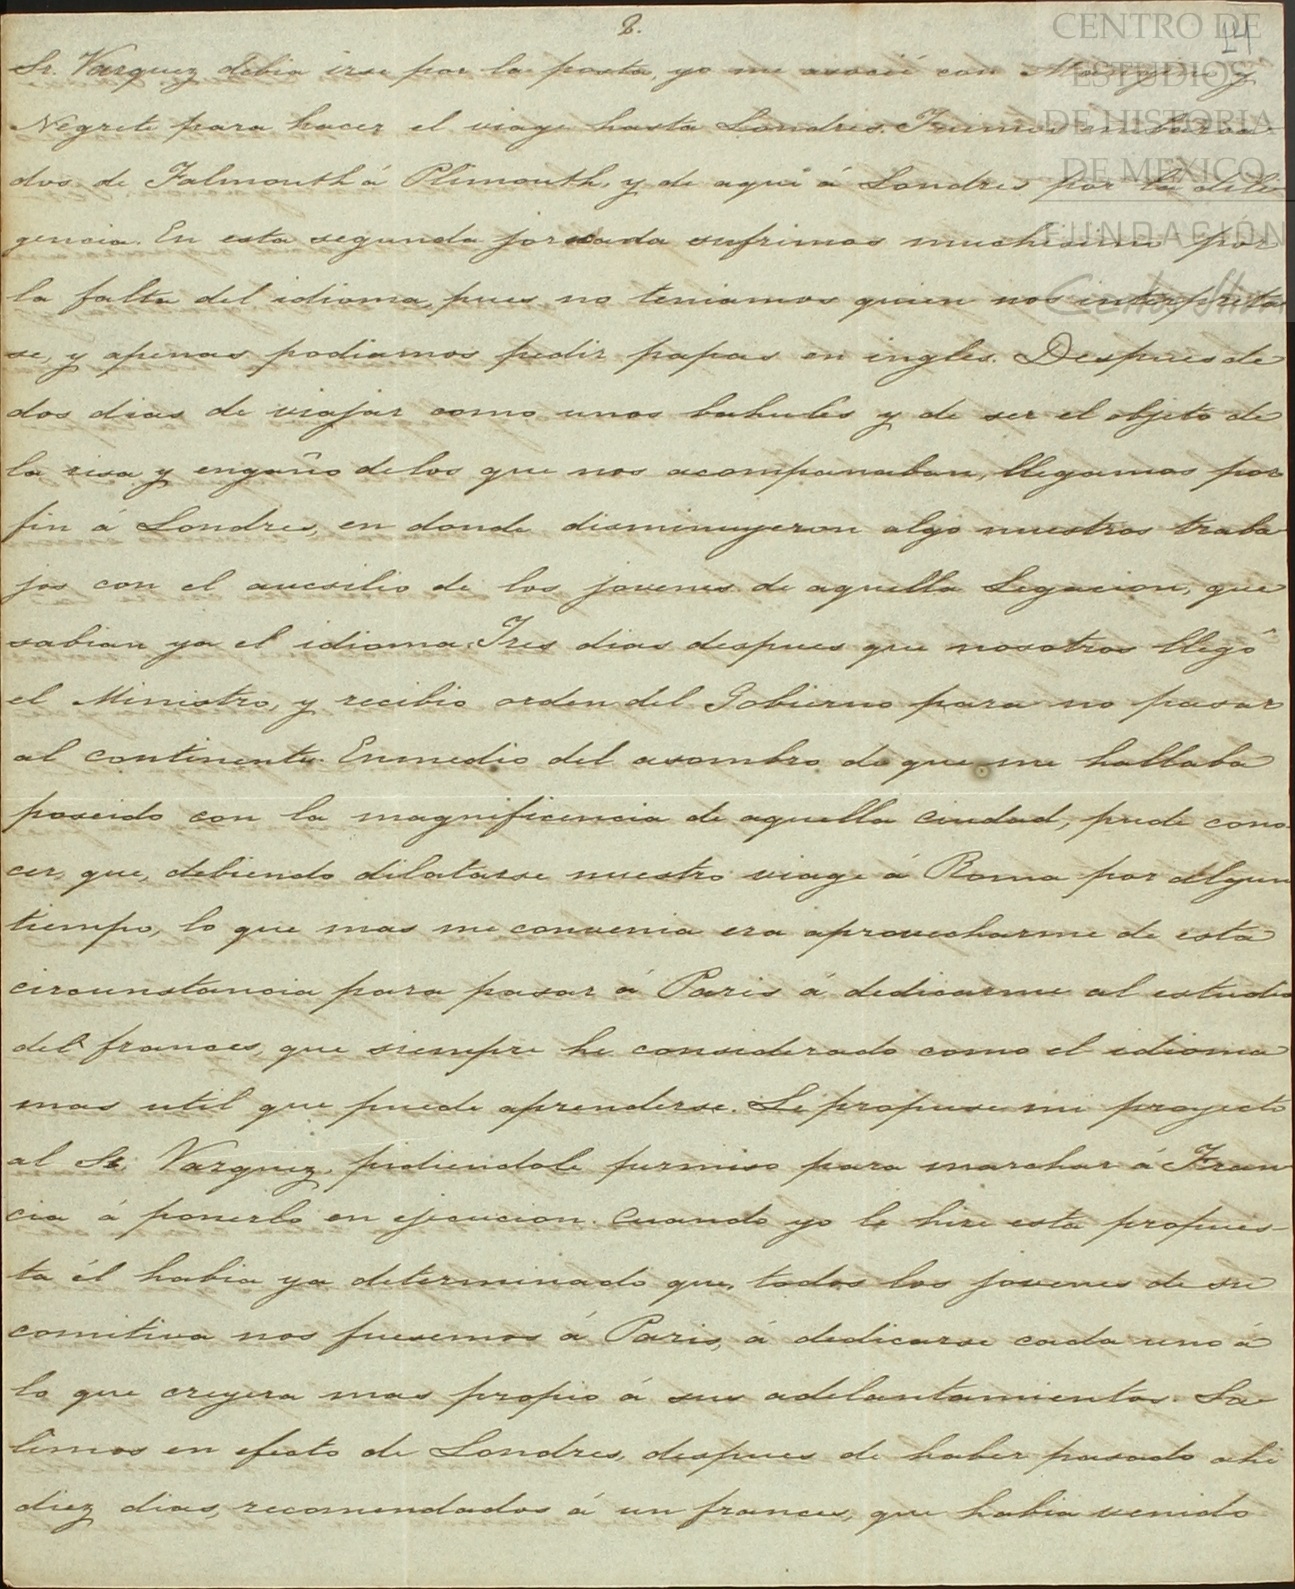 2.
14
CENTRO DE
ESTUDIOS
DE HISTORIA
DE MEXICO
FUNDACIÓN
Carlos Slim
Sr. Vazquez debia irse por la posta, yo me asocié con y
Negrete para hacer el viage hasta Londres. Fuimos embarca-
dos de Falmouth á Plimouth, y de aqui á Londres por la dili-
gencia. En esta segunda jornada sufrimos muchisimo por
la falta del idioma, pues no teniamos quien nos interpreta-
se, y apenas podiamos pedir papas en ingles. Despues de
dos dias de viajar como unos bahules y de ser el objeto de
la risa y engaño de los que nos acompanaban, llegamos por
fin á Londres, en donde disminuyeron algo nuestros traba-
jos con el aucsilio de los jovenes de aquella Legacion, que
sabian ya el idioma. Tres dias despues que nosotros llegó
el Ministro, y recibio orden del Gobierno para no pasar
al continente. Enmedio del asombro de que me hallaba
poseido con la magnificencia de aquella ciudad, pude cono-
cer, que, debiendo dilatarse nuestro viage á Roma por algun
tiempo, lo que mas me convenia era aprovecharme de esta
circunstancia para pasar á Paris á dedicarme al estudio
del frances, que siempre he considerado como el idioma
mas util que puede aprenderse. Le propuse mi proyecto
al Sr. Vazquez, pidiendole permiso para marchar á Fran-
cia á ponerlo en ejecucion. Cuando yo le hize esta propues-
ta él habia ya determinado que todos los jovenes de su
comitiva nos fuesemos á Paris, á dedicarse cada uno á
lo que creyera mas propio á sus adelantamientos. Sa-
limos en efecto de Londres, despues de haber pasado ahi
diez dias, recomendados á un frances, que habia venido